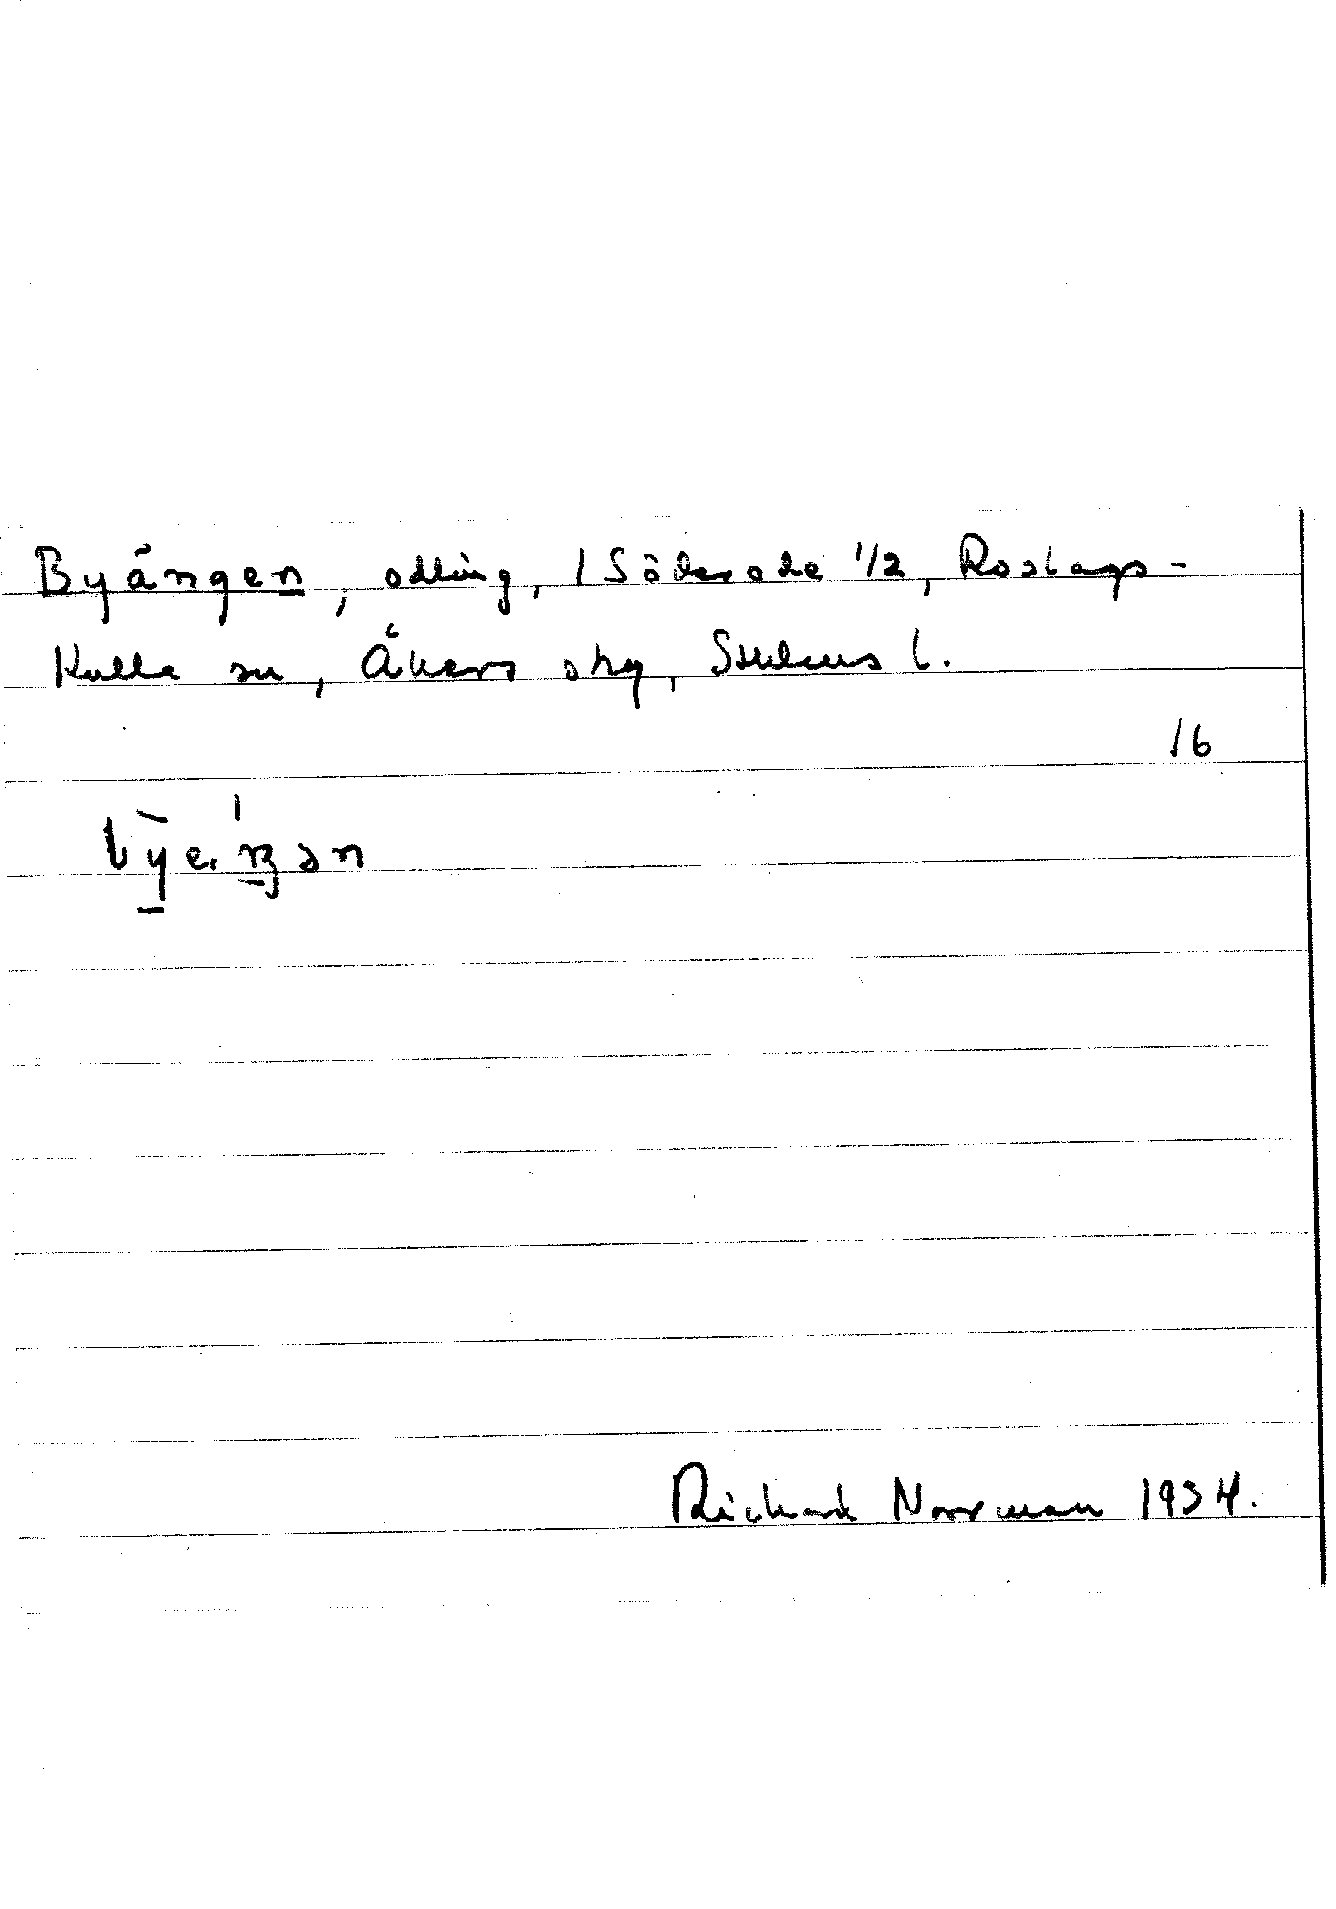 Byängen, odling, 1 Söderode 1/2, Roslags-
Kulla sn, Åkers skg, Sthlms l.
16
Richard Norrman 1934.